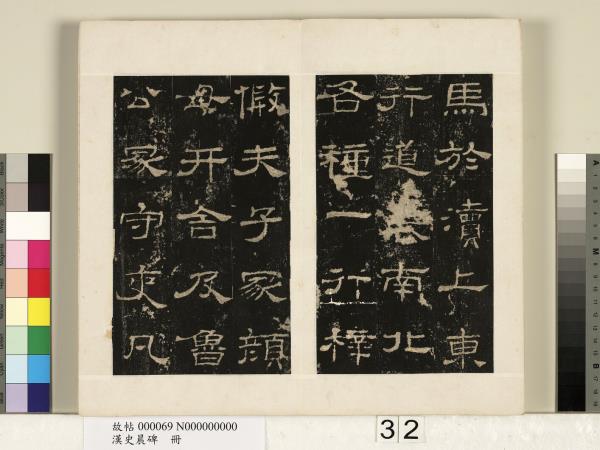 馬於瀆上東
行道表南北
各種一行梓
假夫子冢顏
母开舍及魯
公冢守吏凡
故帖 000069 N000000000
漢史晨碑 冊
32
A
M
B